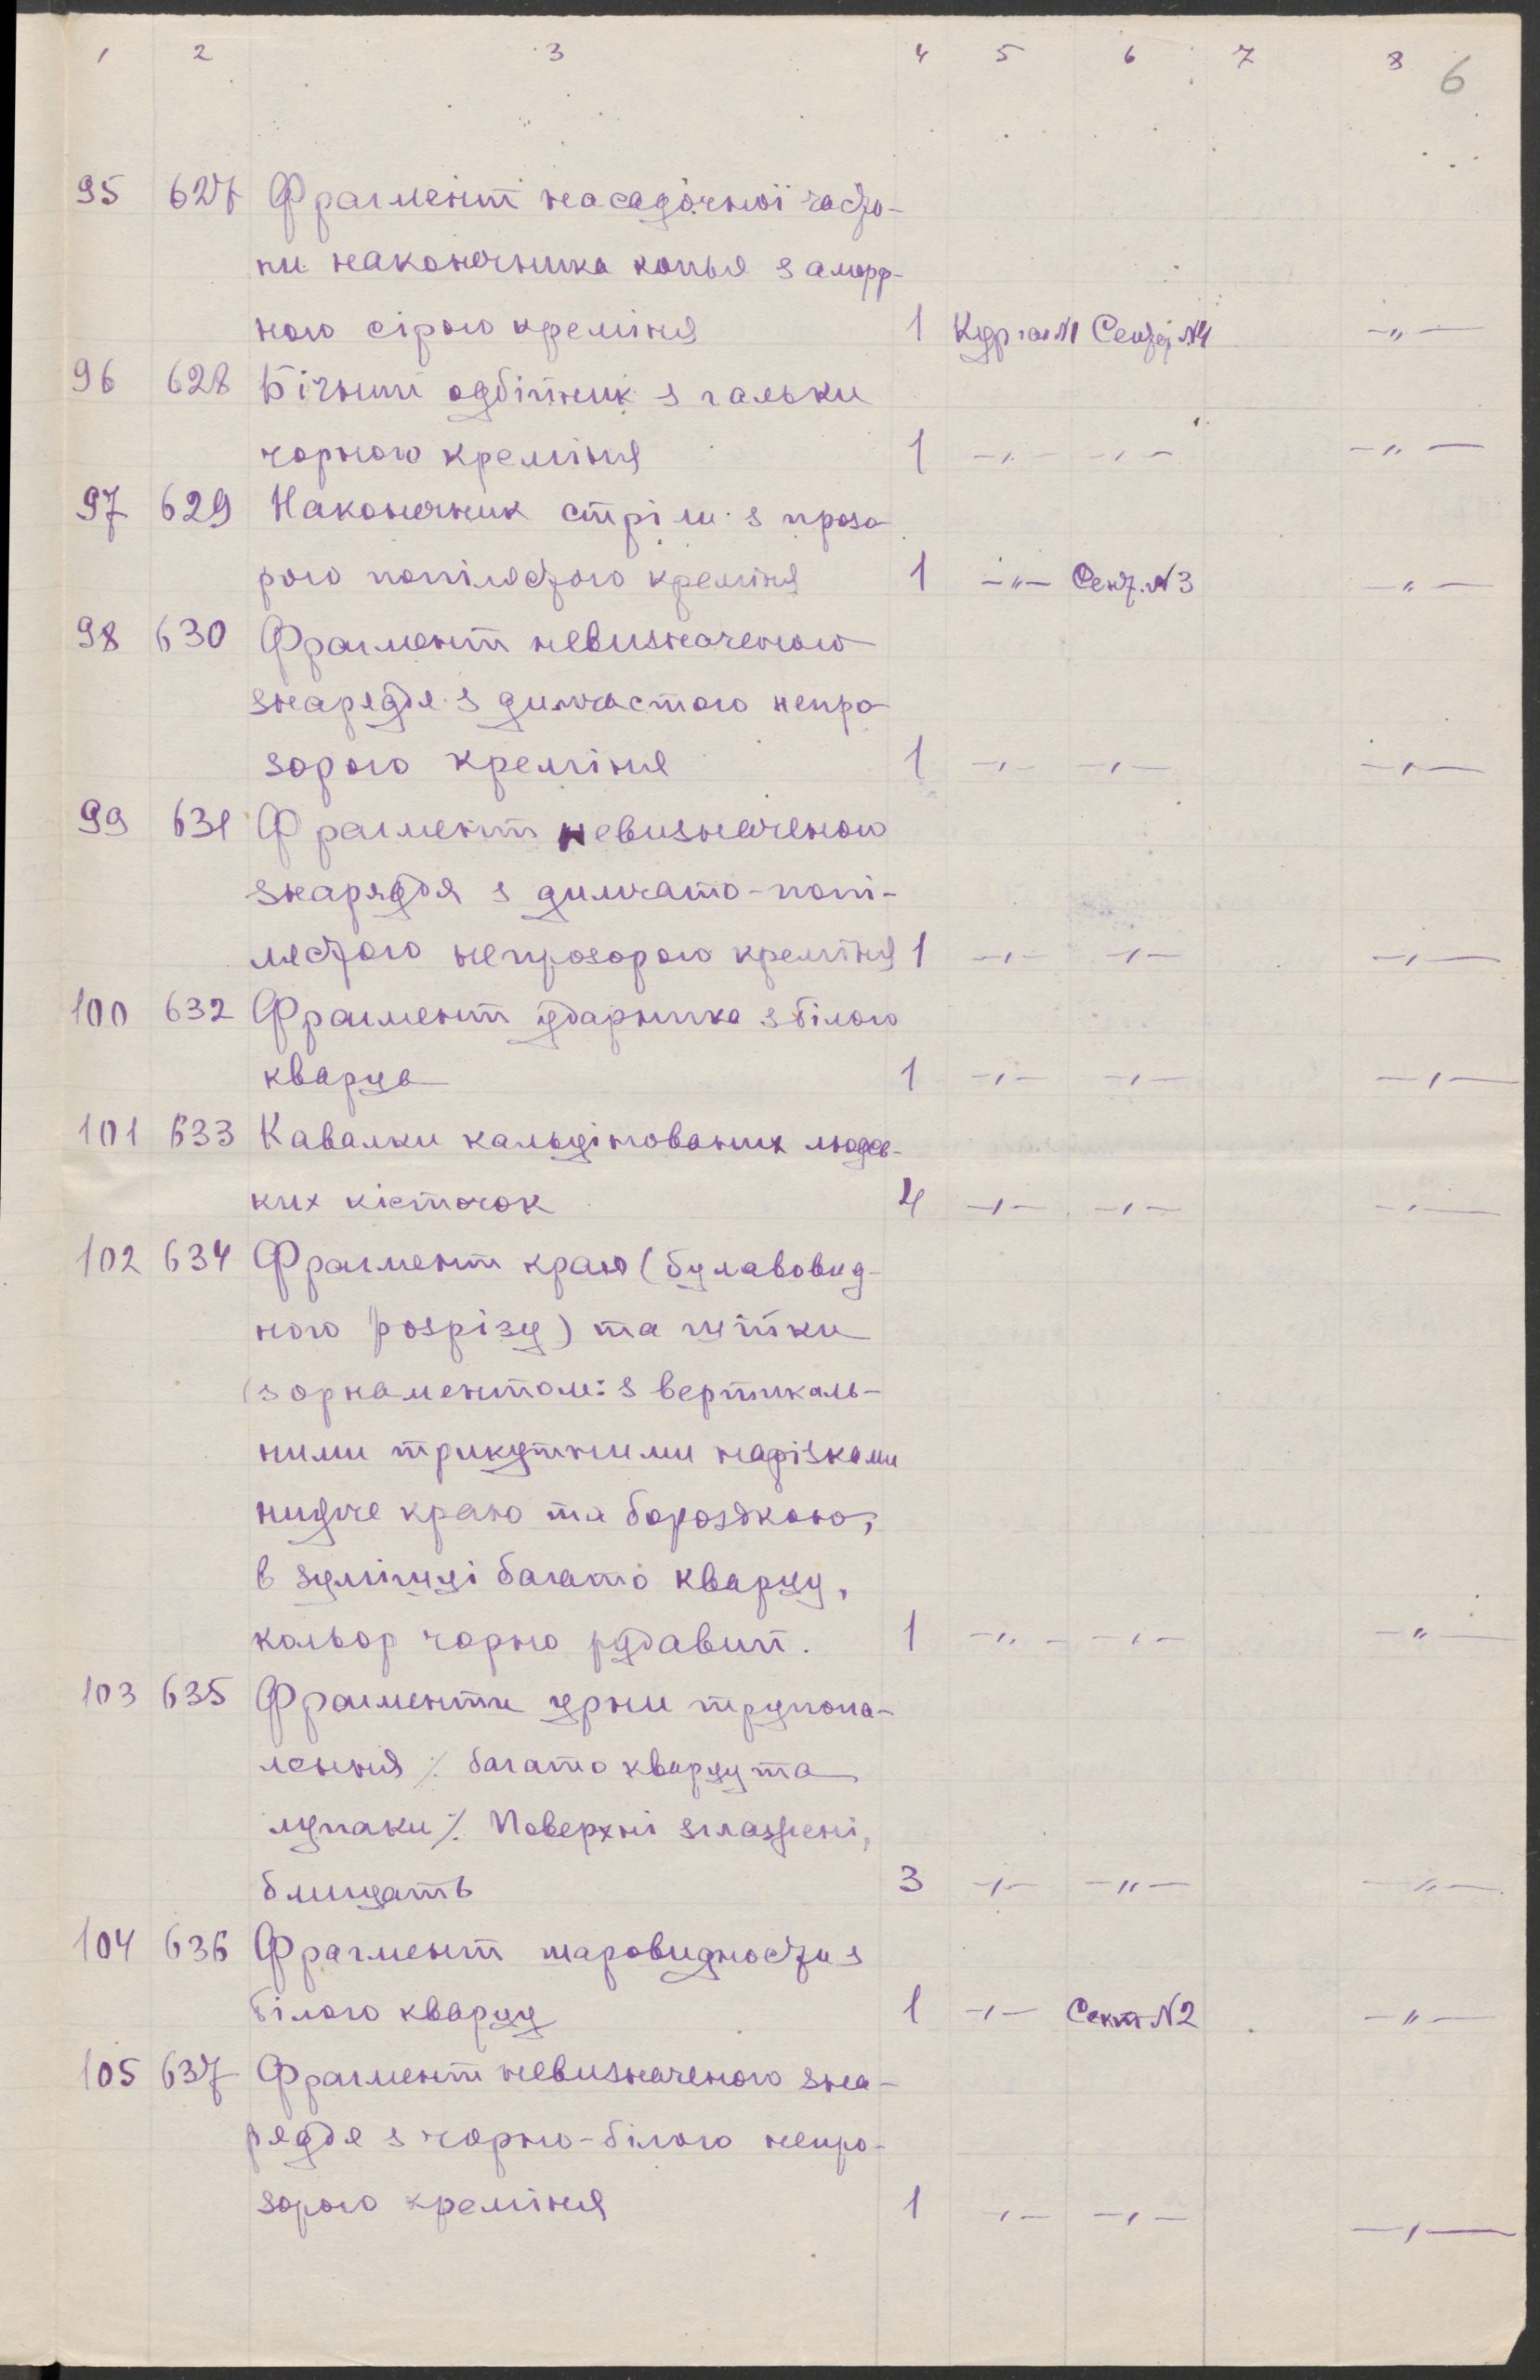 1 2 3 4 5 6 7 8 6
95 627 Фрагмент насадочної части-
ни наконечника копья з аморф-
ного сірого креміня 1 Курган №1 Сектор №4 -„-
96 628 Бічний одбійник з гальки
чорного креміня 1 -„- -„- -„-
97 629 Наконечник стріли з прозо
рого попілястого креміня 1 -„- Сект. №3 -„-
98 630 Фрагмент невизначеного
знаряддя з димчастого непро
зорого креміня 1 -„- -„- -„-
99 631 Фрагмент невизначеного
знаряддя з димчато-попі-
лястого непрозорого креміня 1 -„- -„- -„-
100 632 Фрагмент ударника з білого
кварца 1 -„- -„- -„-
101 633 Кавалки кальцінованих людсь-
ких кісточок 4 -„- -„- -„-
102 634 Фрагмент краю (булавовид-
ного розрізу) та шийки
(з орнаментом: з вертикаль-
ними трикутними нарізками
нижче краю та бороздкою,
в зуміщці багато кварцу,
кольор чорно рудавий. 1 -„- -„- -„-
103 635 Фрагменти урни трупопа-
лення /. багато кварцу та
лупаки /. Поверхні злагжені,
блищать 3 -„- -„- -„-
104 636 Фрагмент шаровидности з
білого кварцу 1 -„- Сект №2 -„-
105 637 Фрагмент невизначеного зна-
ряддя з чорно-білого непро-
зорого креміня 1 -„- -„- -„-